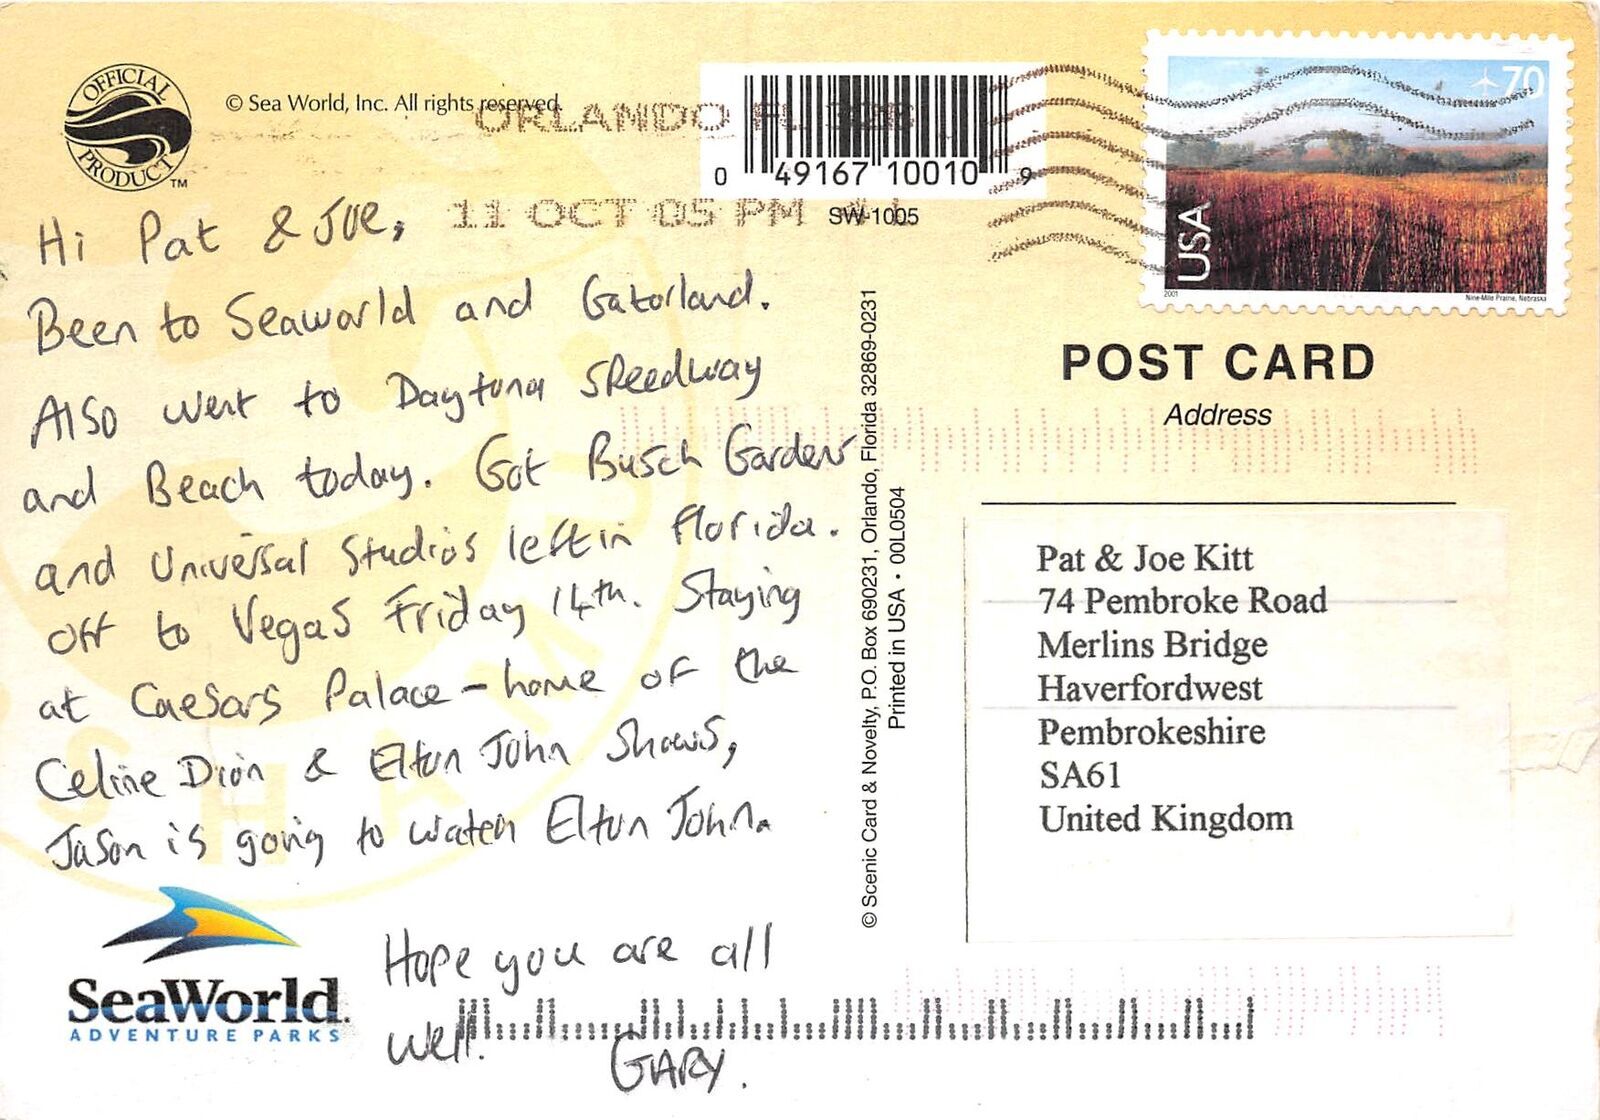 OFFICIAL
PRODUCT™
© Sea World, Inc. All rights reserved.
ORLANDO FL 328
11 OCT 05 PM
0 49167 10010 9
SW-1005
70
USA
2001
Nine-Mile Prairie, Nebraska
Hi Pat & Joe,
Been to Seaworld and Gatorland.
Also went to Daytona Speedway
and Beach today. Got Busch Gardens
and Universal Studios left in Florida.
Off to Vegas Friday 14th. Staying
at Caesars Palace - home of the
Celine Dion & Elton John Shows,
Jason is going to watch Elton John.
Hope you are all
well.
GARY.
SeaWorld.
ADVENTURE PARKS
© Scenic Card & Novelty, P.O. Box 690231, Orlando, Florida 32869-0231
Printed in USA • 00L0504
POST CARD
Address
Pat & Joe Kitt
74 Pembroke Road
Merlins Bridge
Haverfordwest
Pembrokeshire
SA61
United Kingdom